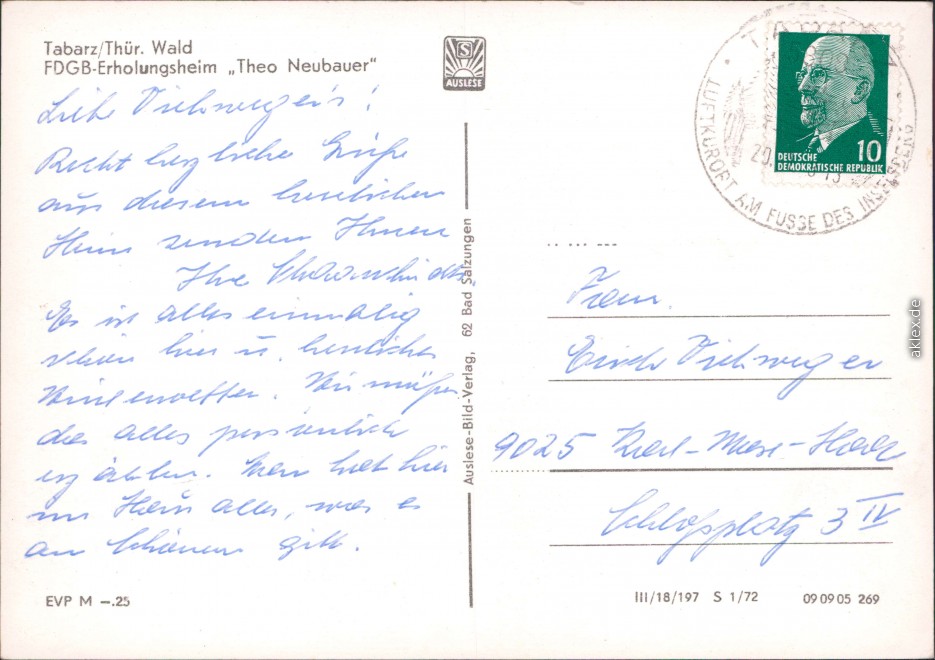 Tabarz/Thür. Wald
FDGB-Erholungsheim „Theo Neubauer"
Liebe Viehwegers!
Recht herzliche Grüße
aus diesem herrlichen
Heim senden Ihnen
Ihre
Es ist alles einmalig
schön hier u. herrliches
Winterwetter. Wir müssen
das alles persönlich
erzählen. Man hat hier
im Haus alles, was es
an Schönem gibt.
EVP M –.25
AUSLESE
Auslese-Bild-Verlag, 62 Bad Salzungen
TABARZ
LUFTKURORT AM FUSSE DES INSELSBERG
10
DEUTSCHE
DEMOKRATISCHE REPUBLIK
Fam.
Erich Viehweger
9025 Karl-Marx-Stadt
Schloßplatz 3 IV
III/18/197 S 1/72 09 09 05 269
aklex.de